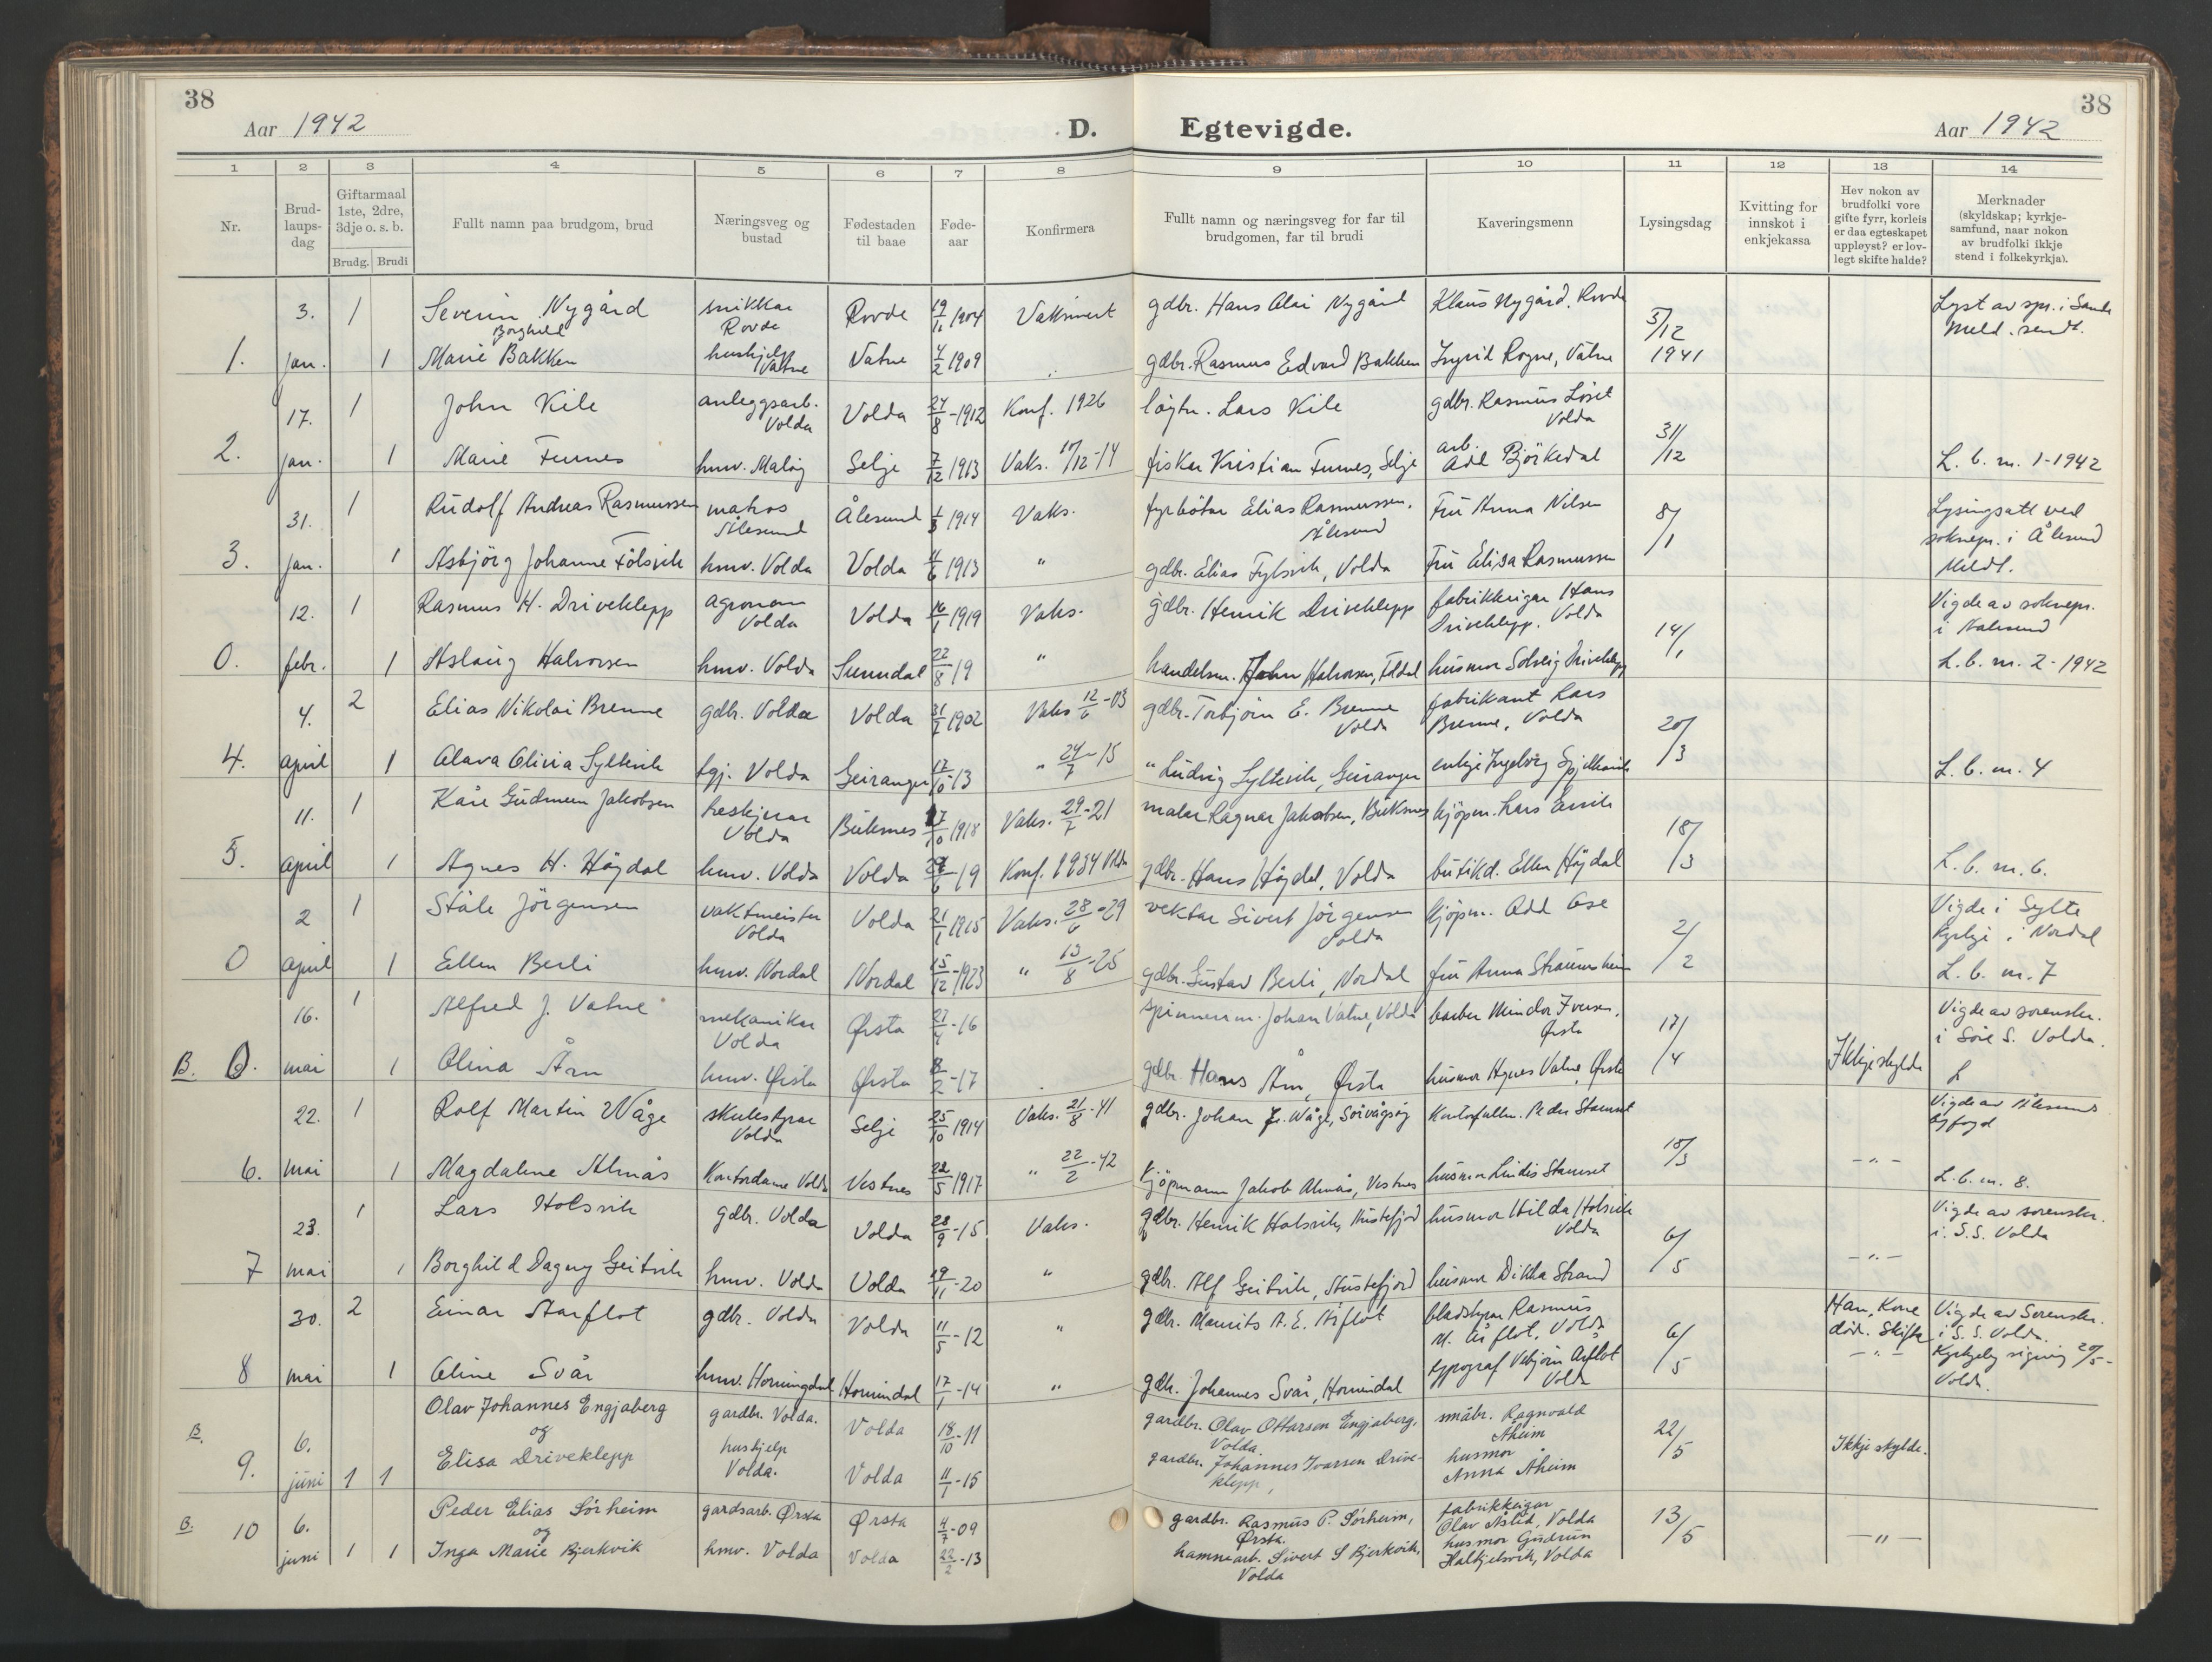 38
Aar 1942
D. Egtevigde.
Aar 1942
38
1 2 3 4 5 6 7 8 9 10 11 12 13 14
Nr.
Brud-
laups-
dag
Giftarmaal
1ste, 2dre,
3dje o. s. b.
Brudg. Brudi
Fullt namn paa brudgom, brud
Næringsveg og
bustad
Fødestaden
til baae
Føde-
aar
Konfirmera
Fullt namn og næringsveg for far til
brudgomen, far til brudi
Kaveringsmenn
Lysingsdag
Kvitting for
innskot i
enkjekassa
Hev nokon av
brudfolki vore
gifte fyrr, korleis
er daa egteskapet
uppløyst? er lov-
legt skifte halde?
Merknader
(skyldskap; kyrkje-
samfund, naar nokon
av brudfolki ikkje
stend i folkekyrkja).
3. 1 Severin Nygård snikkar Rovde Rovde 19/11 1904 Vaksinert gdbr. Hans Alai Nygård Klaus Nygård. Rovde 5/12 1941 Lyst av spr. i Sande Meld. sendt.
1. jan. 1 Borghild Marie Bakken hushjelp Vatne Vatne 4/2 1909 gdbr. Rasmus Edvard Bakken Ingrid Rogne, Vatne
17. 1 John Kile anleggsarb. Volda Volda 24/8-1912 Konf. 1926 løgtn. Lars Kile gdbr. Rasmus Løset Volda 31/12
2. jan. 1 Marie Furnes hmv. Måløy Selje 7/12 1913 Vaks. 10/12-14 fiskar Kristian Furnes, Selje arb. Add Björkedal L. b. m. 1-1942
31. 1 Rudolf Andreas Rasmussen matros Ålesund Ålesund 1/3 1914 Vaks. fyrbötar Elias Rasmussen. Ålesund Fru Anna Nilsen 8/1 Lysingsatt ved soknepr. i Ålesund Meldt.
3. jan. 1 Asbjörg Johanne Fölsvik hmv. Volda Volda 4/6 1913 " gdbr. Elias Fylsvik, Volda Fru Elisa Rasmussen
12. 1 Rasmus H. Driveklepp agronom Volda Volda 16/1 1919 Vaks. gdbr. Henrik Driveklepp fabrikkeigar Hans Driveklepp. Volda 14/1 Vigde av soknepr. i Aalesund
0. febr. 1 Aslaug Halvorsen hmv. Volda Sunndal 22/8 19 " handelsm. John Halvorsen, husmor Solveig Driveklepp L. b. m. 2-1942
4. 2 Elias Nikolai Brenne gdbr. Volda Volda 31/7 1902 Vaks 12/6-03 gdbr. Torbjörn E. Brenne Volda fabrikant Lars Brenne, Volda 20/3
4. april 1 Alava Olivia Syltevik tgj. Volda Geiranger 17/10-13 " 24/7-15 " Ludvig Syltevik, Geiranger enkje Ingeborg L. b. m. 4
11. 1 Kåre Gudmun Jakobsen Volda Buksnes 27/10 1918 Vaks. 29/7-21 malar Ragnar Jakobsen, Buksnes kjöpm. Lars 18/3
5. april 1 Agnes H. Högdal hmv. Volda Volda 19 Konf. 1934 Volda gdbr. Hans Högdal, Volda butikd. Ellen Högdal L. b. m. 6.
2 1 Ståle Jörgensen vaktmeister Volda Volda 21/1 1915 Vaks. 28/6-29 vektar Sivert Jörgensen Volda kjöpm. Add Ose 2/2 Vigde i Sylte kyrkje i Nordal
0 april 1 Ellen Berli hmv. Nordal Nordal 15/12-1923 " 13/8-25 gdbr. Gustav Berli, Nordal fru Anna Straumsheim L. b. m. 7
16. 1 Alfred J. Vatne mekanikar Volda Ørsta 27/4-16 spinnerim. Johan Vatne, Volda barber Mindor Iversen. Ørsta 17/4 Vigde av sorenskr. i Söre S. Volda.
B. 0. mai 1 Olina Åm hmv. Ørsta Ørsta 8/2-17 gdbr. Hans Åm, Ørsta husmor Agnes Vatne, Ørsta Ikkje skylde L
22. 1 Rolf Martin Wåge skulestyrar Volda Selje 25/10 1914 Vaks. 21/8-41 gdbr. Johan Fr. Wåge, Sörvågsöy Kontorfullm. Peder Stamnset 10/3 Vigde av Ålesund byfogd
6. mai 1 Magdalene Almås Kontordame Volda Vestnes 22/5 1917 " 22/2-42 Kjöpmann Jakob Almås, Vestnes husmor Lindis Stamnset — " — L. b. m. 8.
23. 1 Lars Holsvik gdbr. Volda Volda 28/9-15 Vaks. gdbr. Henrik Holsvik, Austefjord husmor Hilda Holsvik Volda 6/5 Vigde av sorenskr. i. S.S. Volda
7 mai 1 Borghild Dagny Geitvik hmv. Volda Volda 19/11-20 " gdbr. Alf Geitvik, Austefjord husmor Dikka Strand — " —
30. 2 Einar Aarflot gdbr. Volda Volda 11/5-12 " gdbr. Maurits A. E. Aarflot bladstyrar Rasmus M. Aarflot, Volda 6/5 Han, Kone död. Skifte — " — Vigde av Sorenskr. i S. S. Volda. Kyrkjeleg signing 20/5- Volda.
8 mai 1 Oline Svår hmv. Horningdal Hornindal 17/1-14 " gdbr. Johannes Svår, Hornindal typograf Vebjörn Aarflot Volda
B. 9. 6. juni 1 1 Olav Johannes Engjaberg gardbr. Volda. Volda 18/10-11 gardbr. Olav Ottarson Engjaberg, Volda. småbr. Ragnvald Aheim 22/5 Ikkje skylde.
og
Elisa Driveklepp hushjelp Volda. Volda 11/1-15 gardbr. Johannes Ivarson Drive-klepp, husmor Anna Åheim
B. 10 6. juni 1 1 Peder Elias Sörheim gardsarb. Ørsta Ørsta 4/7-09 gardbr. Rasmus P. Sörheim, Ørsta. fabrikkeigar Olav Aslid, Volda 13/5 — " —
og
Inga Marie Bjerkvik hmv. Volda Volda 22/2-13 hamnearb. Sivert S Bjerkvik, Volda husmor Gudrun Halkjelsvik, Volda